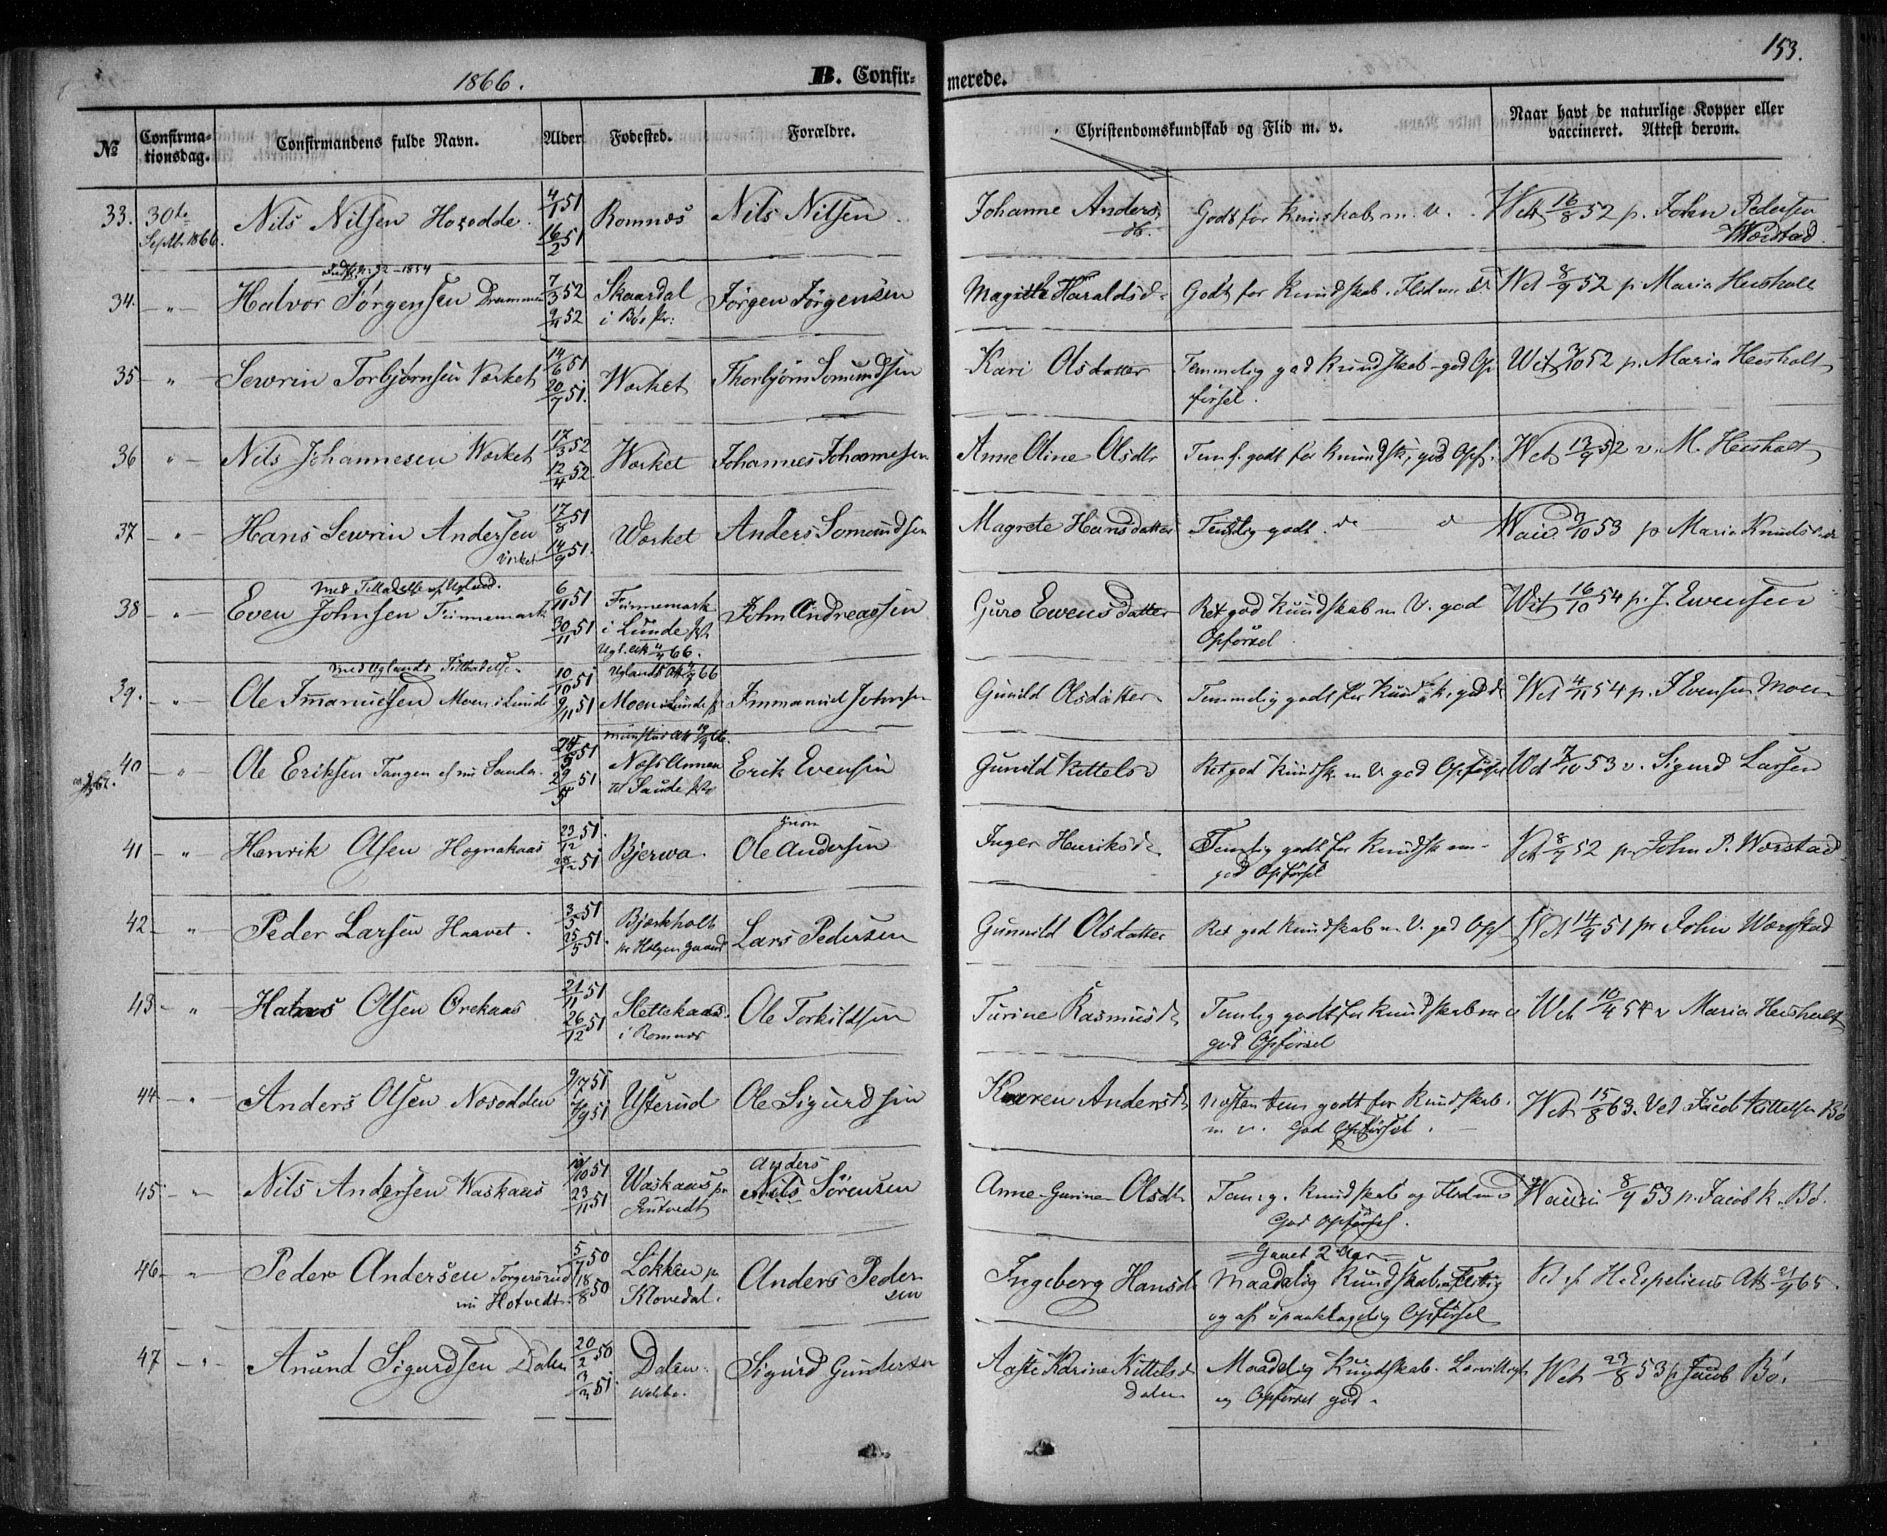 153.
1866. B. Confir- merede.
№ Confirma-tionsdag. Confirmandens fulde Navn. Alder Fødested. Forældre. Christendomskundskab og Flid m. v. Naar havt de naturlige Kopper eller vaccineret. Attest derom.
33. 30te Septbr. 1866. Nils Nilsen 4/1 51 16/2 51 Romnes Nils Nilsen Johanne Anders dtr. Godt for Kundskab m. V. Vct 16/8 52 p. John Pedersen Worstad.
34. - " - Halvor Jørgensen Drammen 7/3 52 9/4 52 Skaardal i Bø Pr: Jørgen Jørgensen Magnhilde Haraldsd. Godt for Kundskab. Flid m. V. Vct 8/9 52 p. Maria Hersholt
35 " - Sewrin Torbjørnsen Værket 14/6 51 20/7 51. Worket Thorbjørn Somundsen Kari Olsdatter Temmelig god Kundskab - god Opførsel. Vct 3/10 52 p. Maria Hersholt
36 " - Nils Johannesen Worket 17/3 52 12/4 52. Worket Johannes Johannesen Anne Oline Olsdtr Teml. godt for Kundsk., god Opf. Vct 13/9 52 v. M. Hersholt
37 - " - Hans Sewrin Andersen Værket 17/8 51 14/9 51. Worket Anders Somundsen Magrete Hansdatter Temlig godt. do do Vaic. 3/10 53 p Maria Knudsd.
38 " - Med Tilladelse af Ugland. Even Johnsen Finnemark 6/11 51 30/11 51 Finnemark i Lunde Pr. 66. John Andreassen Guro Ewensdatter Ret god Kundskab m. V. god Opførsel Vct 16/10 54 p. J. Ewensen
39. - " - med Uglands Tilladelse. Ole Imanuelsen Moen i Lunde 10/10 51 9/11 51 Uglands Att 66 Moen i Lunde Pr Immanuel Johnsen Gunild Olsdatter Temmelig godt for Kundsk., god do Vct 4/11 54 p. J Evensen Moen
40 - " Ole Eriksen Tangen af nu Saude. 51 51 Næss Annex til Saude Pr Erik Evensen Gunild Kittelsd Ret god Kundsk. m V. god Opførsel Vct 7/10 53 v. Sigurd Larsen
41 - " Henrik Olsen Hognakaas 23/12 51. 51 Bjerwa. Ole Andersen Inger Henriksd. Temlig godt for Kundsk m - god Opførsel Vct 8/9 52 p. John P. Worstad
42 - " Peder Larsen Haavet. 3/5 51 25/5 51. Bjerkholt Lars Pedersen Gunnild Olsdatter Ret god Kundskab m. V. god Opf. Vct 14/9 51 pr John Worstad
43 - " Olsen Orekaas 21/11 51 26/12 51 Slettekaas i Romnes Ole Torkildsen Turine Rasmusd. Temlig godt for Kundskab m v god Opførsel Vct 10/4 54 v Maria Hersholt
44 - " - Anders Olsen Næsodden 9/7 51 7/9 51 Ysterud Ole Sigurdsen Karen Andersd. Næsten tem godt for Kundskab. m v. God Opførsel. Vct 15/8 63. Ved Jacob Kittelsen Bø
45 - " - Nils Andersen Waskaas 51 23/11 51 Waskaas pr Anders Nils Sørensen Anne Gurine Olsdt. Temlg. Kundskab og Flid m v God Opførsel. Vaicci 8/9 53 p. Jacob K. Bø.
46 - " Peder Andersen Torgersrud nu Hotvedt. 5/7 50 18/8 50 Løkken p Klovedal. Anders Pedersen Ingeberg Hansd. = Gaaet 2 Aar = Maadelig Kundskab, Flittig og af upaaklagelig Opførsel Vct af H. Espeliens Att 21/9 65.
47 - " - Anund Sigurdsen Dalen 20/2 50 51. Dalen. Sigurd Gundersen Aaste Karine Kittelsd Dalen Maadelig Kundskab. og Opførsel god. Vct 23/8 53 p. Jacob Bø.